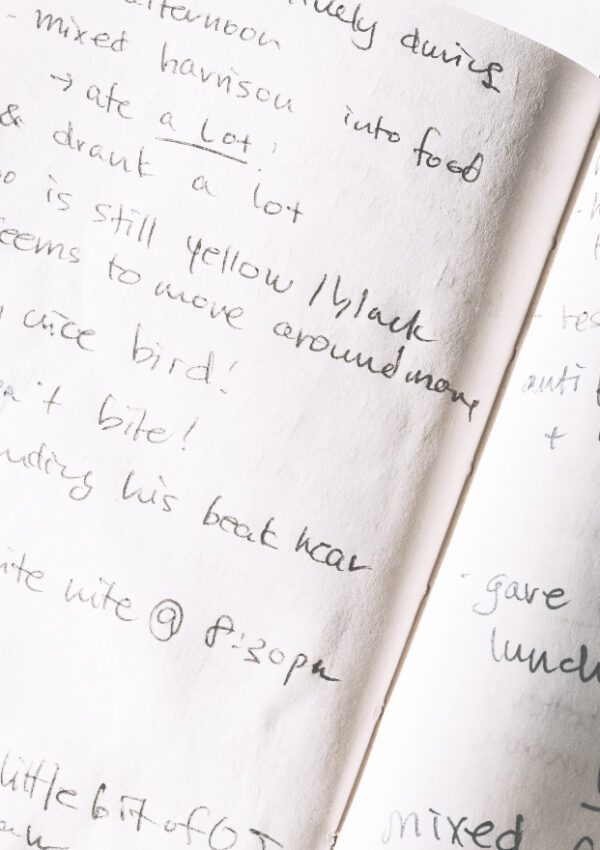 afternoon
during
- mixed harrison into food
→ ate a lot!
& drank a lot
is still yellow / black
seems to move around more
nice bird!
bite!
his beak near
nite @ 8:30pm
little bit of OJ
anti
+
- gave
lunch
mixed